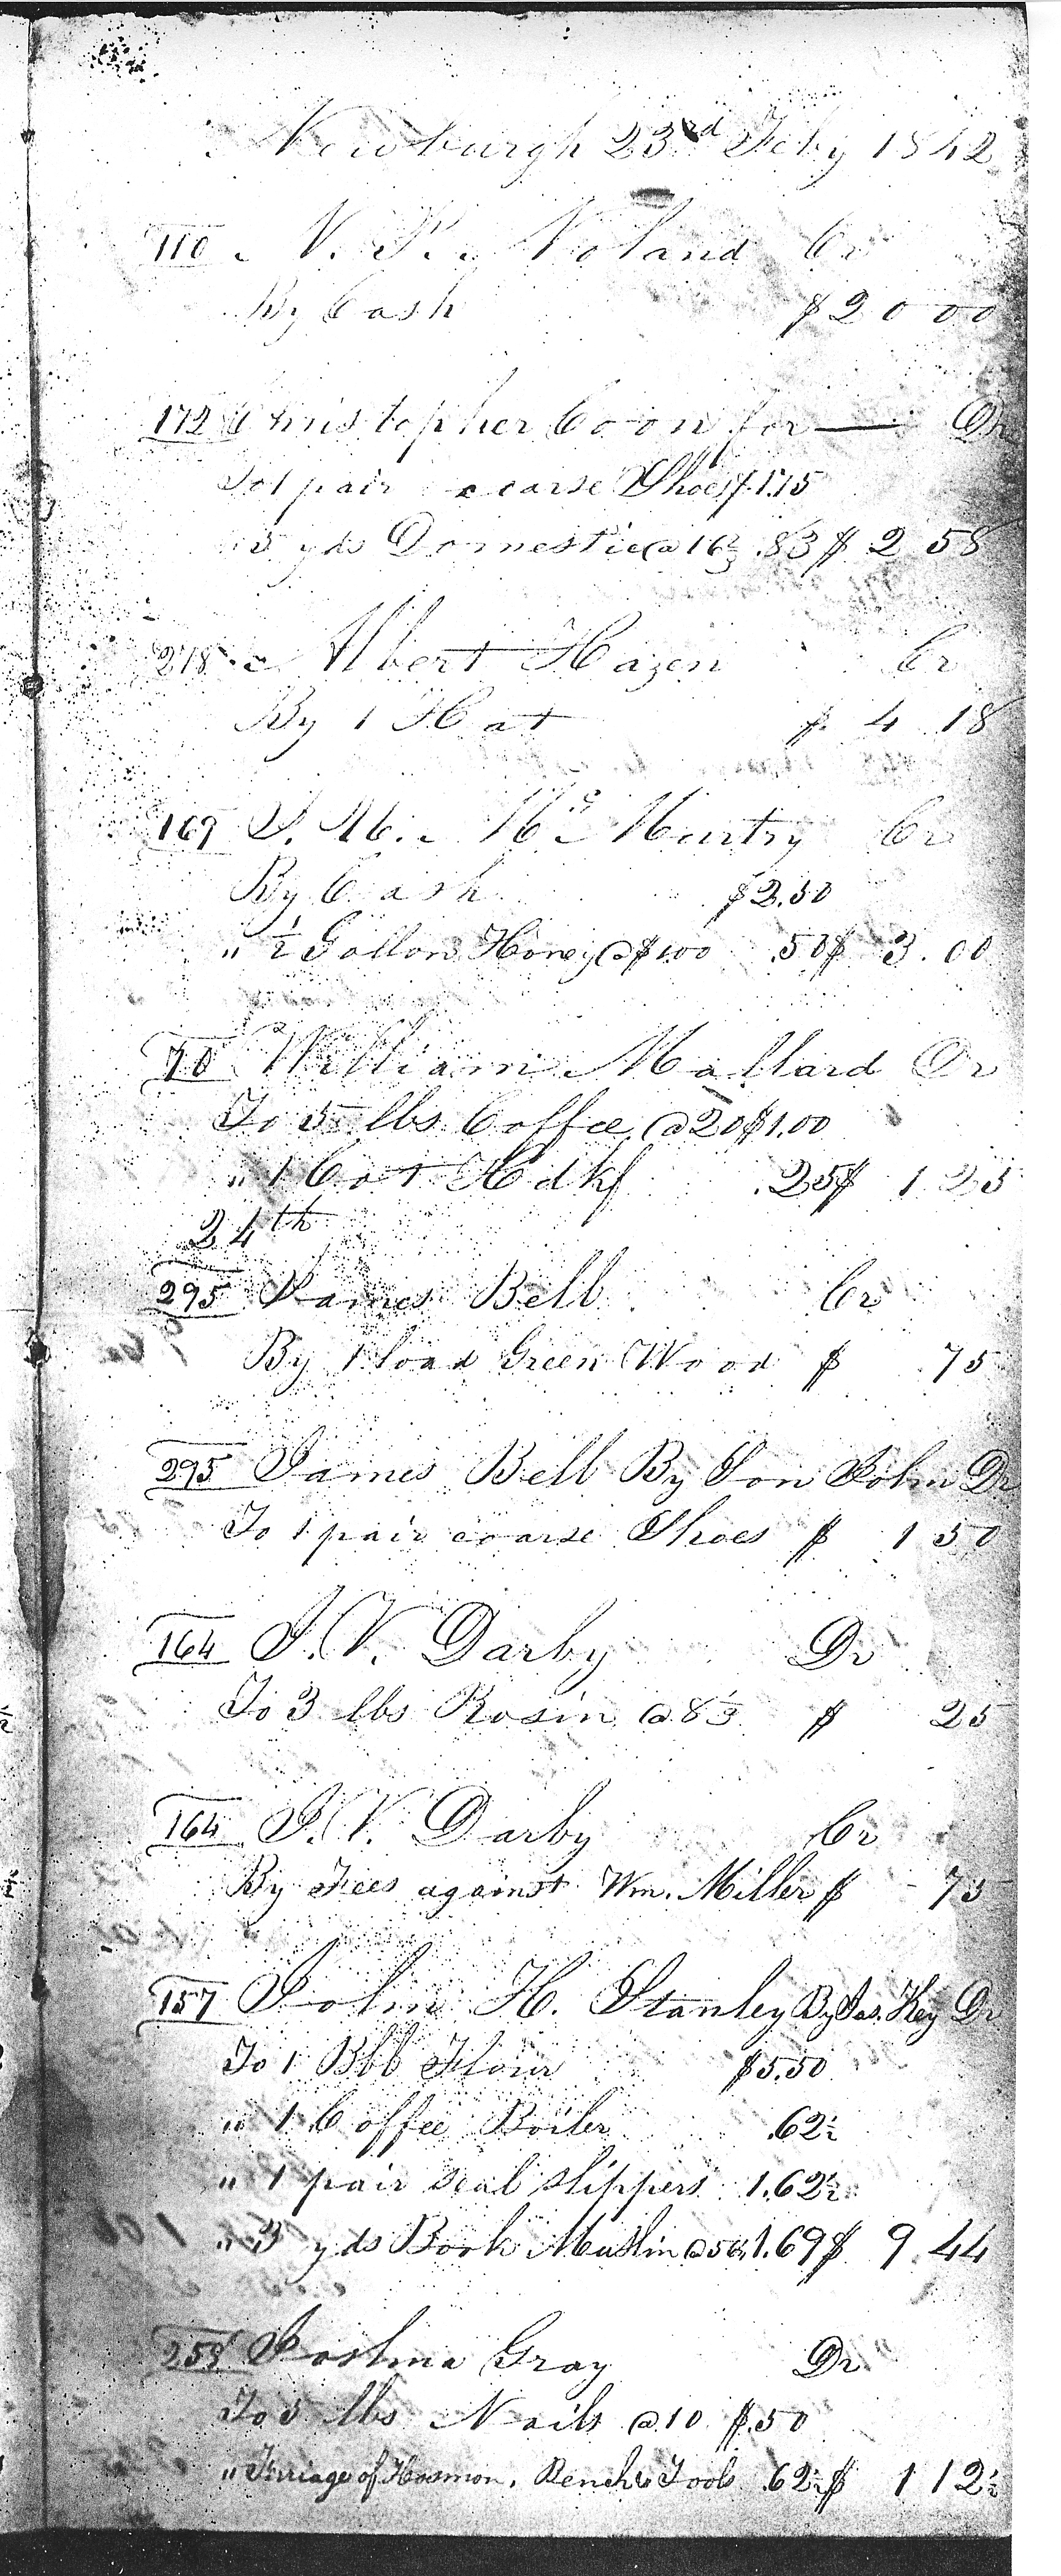 Newburgh 23rd Feby 1842
110 N. P. Noland Cr
By Cash $20 00
172 Christopher Coon for — Dr
To 1 pair coarse Shoes $1.75
" 5 yds Domestic @ 16 2/3 .83 $ 2 58
218 Albert Hazen Cr
By 1 Hat $ 4 18
169 S. M. McMurtry Cr
By Cash $2.50
" ½ Gallon Honey @ $1 00 .50 $ 3.00
70 William Mallard Dr
To 5 lbs Coffee @ 20 $1.00
" 1 Cot Hdkf .25 $ 1 25
24th
295 James Bell Cr
By 1 load Green Wood $ .75
295 James Bell By Son John Dr
To 1 pair coarse Shoes $ 1 50
164 J. V. Darby Dr
To 3 lbs Rosin @ 8⅓ $ 25
164 J. V. Darby Cr
By Fees against Wm. Miller $ 75
157 John H. Stanley By Jas. Key Dr
To 1 Bbl Flour $5.50
" 1 Coffee Boiler .62½
" 1 pair seal slippers 1.62½
" 3 yds Book Muslin @ 56¼ 1.69 $ 9.44
258 Joshua Gray Dr
To 5 lbs Nails @ 10 $.50
" of Bench Tools .62½ $ 1 12½